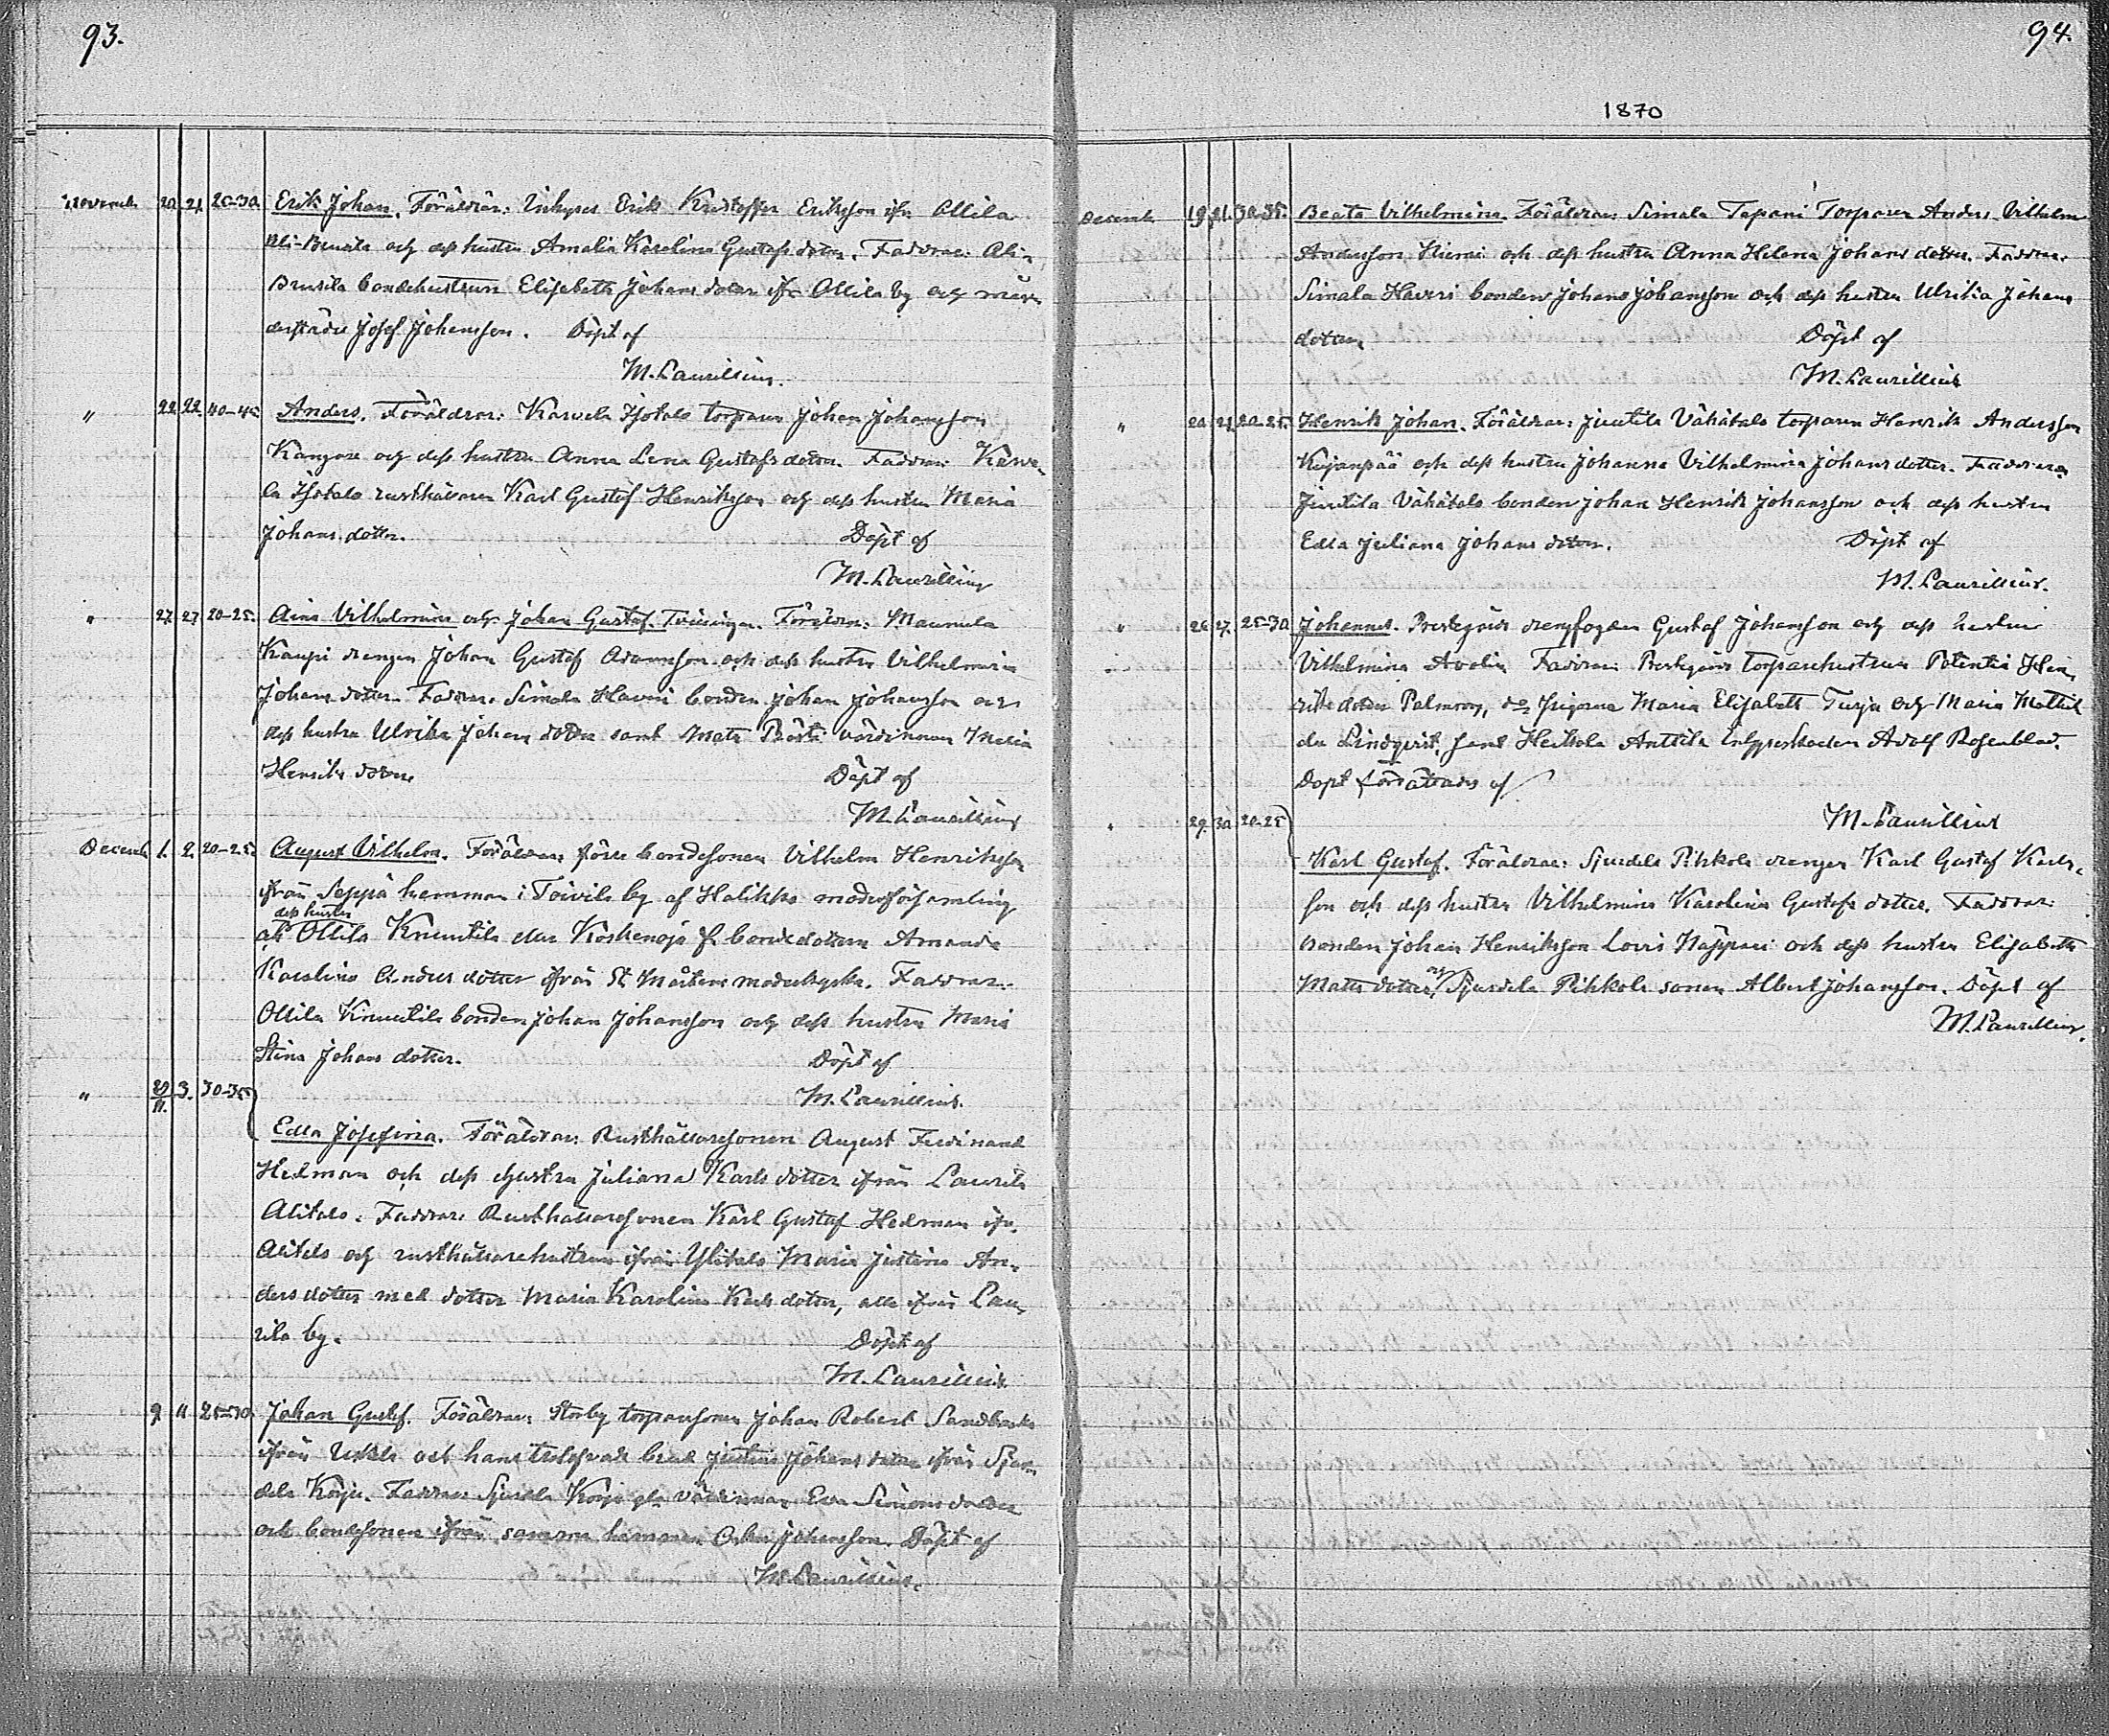 93.
November 20. 21. 20-30. Erik Johan. Föräldrar: Erik Kristoffer Eriksson ifr. Ollila
och dess hustru Amalia Karolina Gustafsdotter. Faddrar: Ali-
Brusila bondehustrun Elisabeth Johansdotter ifr. Ollila by och
Josef Johansson. Döpt af
M. Laurillius.
" 22. 22. 40-45. Anders. Föräldrar: Karvela Isotalo torparen Johan Johansson
och dess hustru Anna Lena Gustafsdotter. Faddrar: Karve-
la Isotalo rusthållaren Karl Gustaf Henriksson och dess hustru Maria
Johansdotter. Döpt af
M. Laurillius
" 27. 27. 20-25. Aina Vilhelmina och Johan Gustaf. Tvillingar. Föräldrar: Maunula
Kaupi drengen Johan Gustaf Adamsson och dess hustru Vilhelmina
Johansdotter. Faddrar: Simala Haveri bonden Johan Johansson och
dess hustru Ulrika Johansdotter samt värdinnan Maria
Henriksdotter Döpt af
M. Laurillius
December 1. 2. 20-25. August Vilhelm. Föräldrar: förre bondesonen Vilhelm Henriksson
ifrån Seppä hemman i Toivila by af Halikko moderförsamling
dess hustru
Ollila Knuutila eller Koskenoja bondedottern Amanda
Karolina Andersdotter ifrån St Mårtens moderkyrka. Faddrar:
Ollila Knuutila bonden Johan Johansson och dess hustru Maria
Stina Johansdotter. Döpt af
M. Laurillius.
" 29/11. 3. 30-35. Edla Josefina. Föräldrar: Rusthållaresonen August Ferdinand
Hedman och dess hustru Juliana Karlsdotter ifrån Laurila
Alitalo. Faddrar: Rusthållaresonen Karl Gustaf Hedman ifr.
Alitalo och rusthållarehustrun ifrån Ylitalo Maria Justina An-
dersdotter med dotter Maria Karolina Karlsdotter, alla ifrån Lau-
rila by. Döpt af
M. Laurillius
9. 11. 25-30. Johan Gustaf. Föräldrar: Storby torparesonen Johan Robert
ifrån Uskela och hans trolofvade brud Justina Johansdotter ifrån Sjur-
dela Korju. Faddrar: Sjurdela Korju värdinnan Eva Simonsdotter
och bondesonen ifrån samma hemman Johansson. Döpt af
M. Laurillius.
94.
1870
December 19. 21. 30-35. Beata Vilhelmina. Föräldrar: Simala Tapani Torparen Anders Vilhelm
Andersson och dess hustru Anna Helena Johansdotter. Faddrar:
Simala Haveri bonden Johan Johansson och dess hustru Ulrika Johans
dotter Döpt af
M. Laurillius
" 20. 21. 20-25. Henrik Johan. Föräldrar: Juntila Vähätalo torparen Henrik Andersson
Kujanpää och dess hustru Johanna Vilhelmina Johansdotter. Faddrar:
Juntila Vähätalo bonden Johan Henrik Johansson och dess hustru
Edla Juliana Johansdotter. Döpt af
M. Laurillius.
" 26. 27. 25-30. Johannes. Prestgårds drengfogden Gustaf Johansson och dess hustru
Vilhelmina Faddrar: Prestgårds torparehustrun Hen-
riksdotter Palmroos, Maria Elisabeth och Maria Mathil
da Lindqvist, samt Heikola Anttila Adolf Rosenblad.
Dopt förrättades af
M. Laurillius
" 29. 30. 20-25. Karl Gustaf. Föräldrar: Sjurdela Pihkola drengen Karl Gustaf Karls-
son och dess hustru Vilhelmina Karolina Gustafsdotter. Faddrar:
bonden Johan Henriksson och dess hustru Elisabeth
Mattsdotter, och Sjurdela Pihkola sonen Albert Johansson. Döpt af
M. Laurillius.